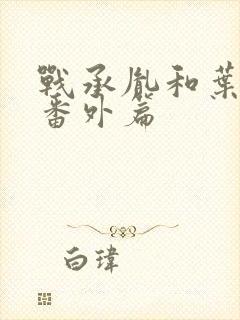 戰承胤和葉
番外篇
白瑋